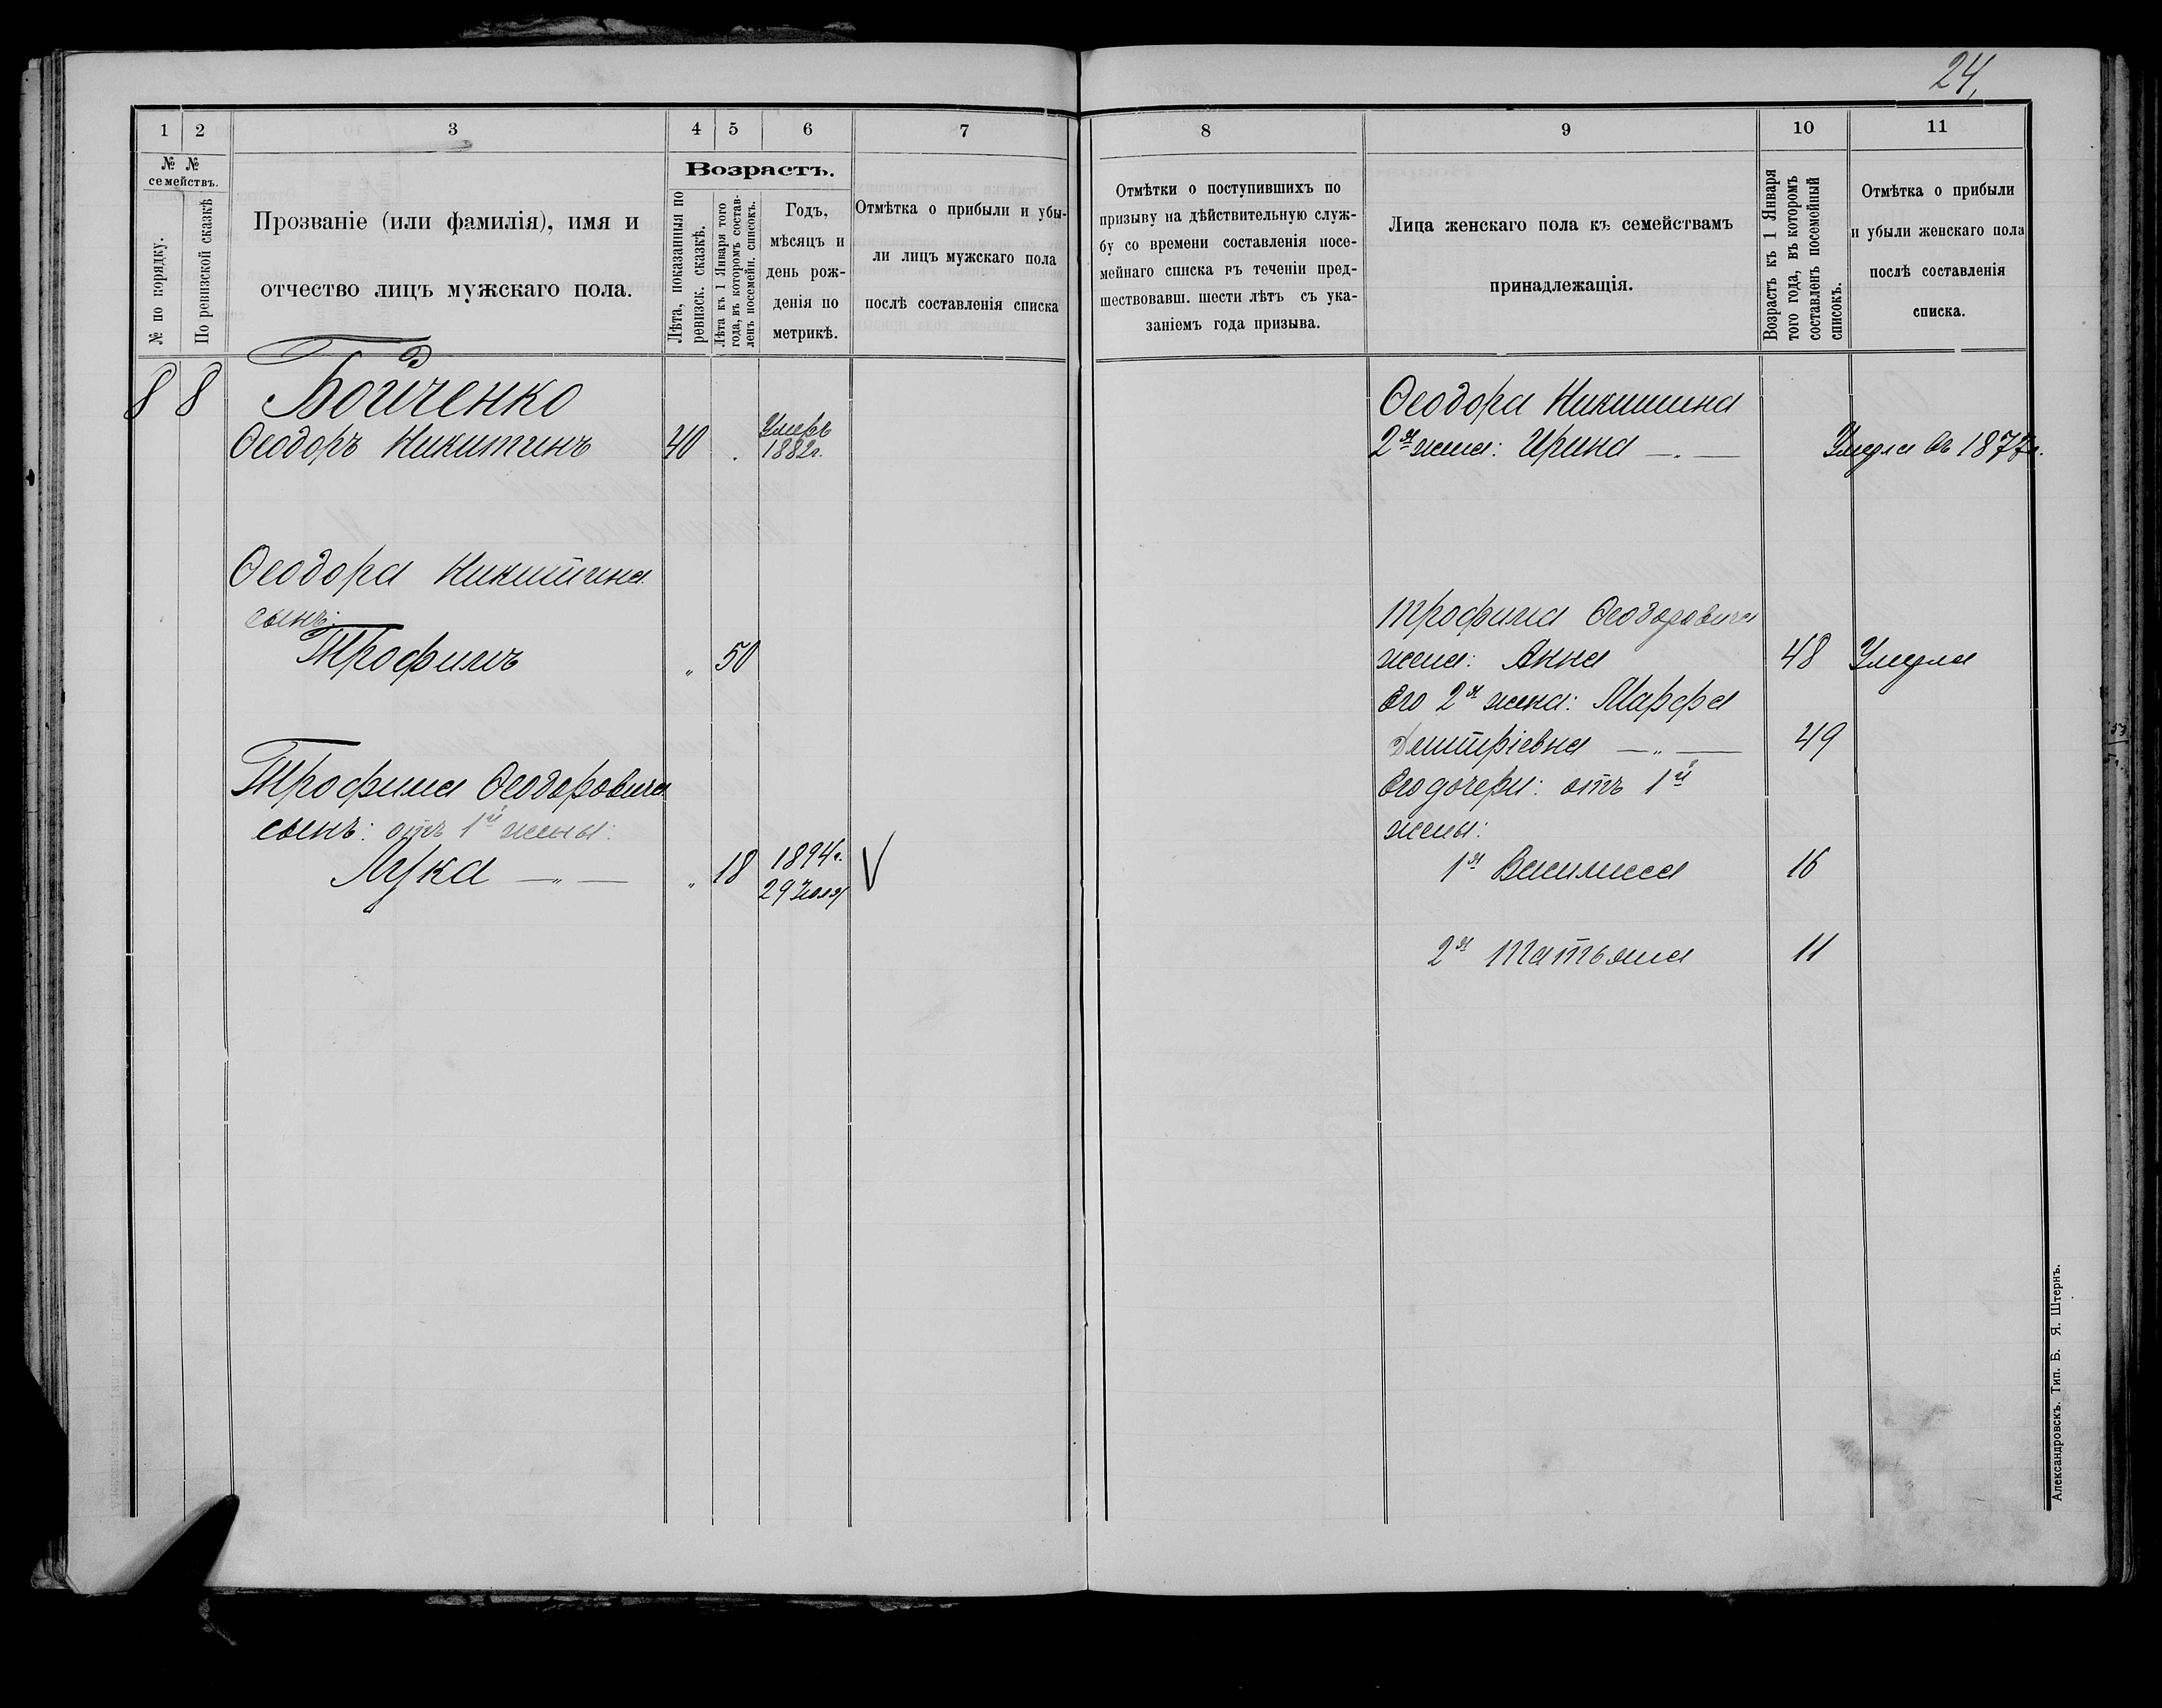 24,
1
2
3
4
5
6
7
№ №
семействъ.
№ по порядку.
По ревизской сказкѣ
Прозваніе (или фамилія), имя и
отчество лицъ мужскаго пола.
Возрастъ.
Лѣта, показанныя по
ревизск. сказкѣ.
Лѣта къ 1 Января того
года, въ которомъ состав-
ленъ посемейн. списокъ.
Годъ,
мѣсяцъ и
день рож-
денія по
метрикѣ.
Отмѣтка о прибыли и убы-
ли лицъ мужскаго пола
послѣ составленія списка
8 8 Бойченко
Ѳеодоръ Никитинъ 40 . Умеръ
1882г.
Ѳеодора Никитина
сынъ:
Трофимъ „ 50
Трофима Ѳеодоровича
сынъ: отъ 1й жены:
Лука — „ — „ 18 1894г.
29 Іюля V
8
9
10
11
Отмѣтки о поступившихъ по
призыву на дѣйствительную служ-
бу со времени составленія посе-
мейнаго списка въ теченіи пред-
шествовавш. шести лѣтъ съ ука-
заніемъ года призыва.
Лица женскаго пола къ семействамъ
принадлежащія.
Возрастъ къ 1 Января
того года, въ которомъ
составленъ посемейный
списокъ.
Отмѣтка о прибыли
и убыли женскаго пола
послѣ составленія
списка.
Ѳеодора Никитина
2я жена: Ирина — . — Умерла въ 1877г.
Трофима Ѳеодоровича
жена: Анна 48 Умерла
Его 2я жена: Марфа
Дмитріевна — „ — 49
Его дочери: отъ 1й
жены:
1я Василиса 16
2я Татьяна 11
Александровскъ. Тип. Б. Я. Штернъ.